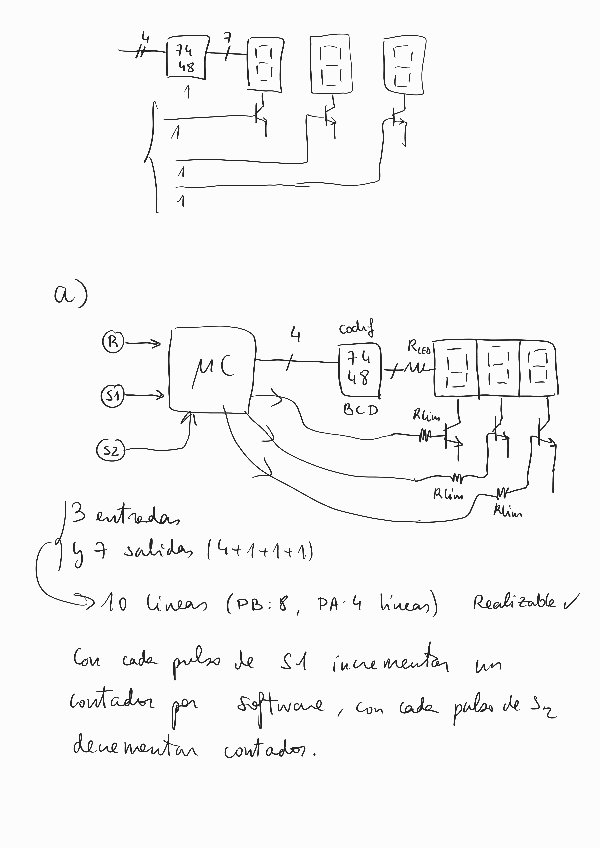 4 7
74
48
1
1
1
1
a)
R
S1
S2
μC
4
codif
74
48
BCD
RLED
Rlim
Rlim
Rlim
3 entradas
y 7 salidas (4+1+1+1)
10 lineas (PB:8, PA:4 lineas) Realizable ✓
Con cada pulso de S1 incrementar un
contador por software, con cada pulso de S2
decrementar contador.